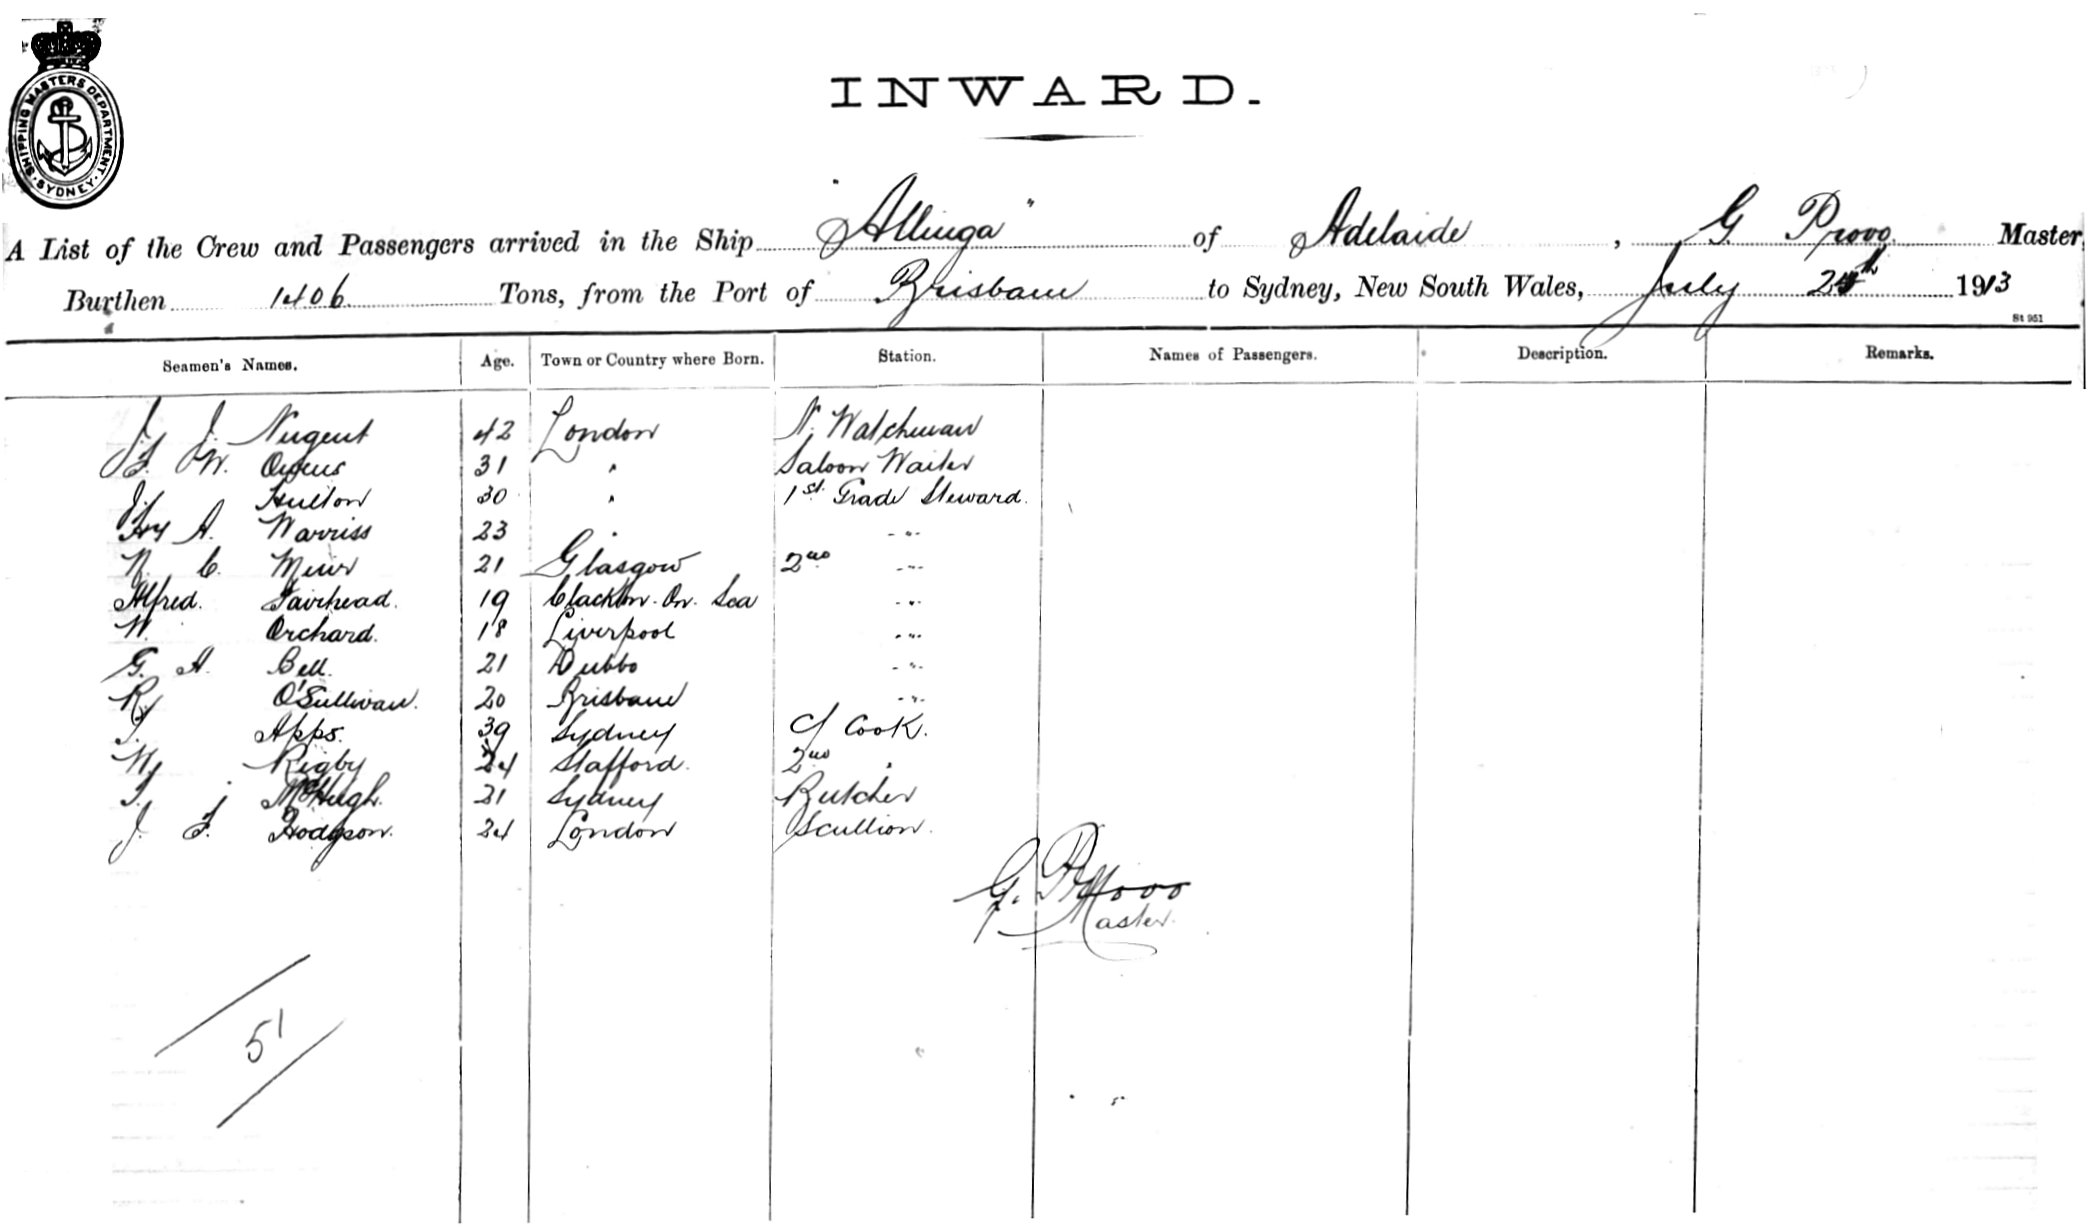 SHIPPING MASTERS DEPARTMENT
SYDNEY
INWARD.
A List of the Crew and Passengers arrived in the Ship "Allinga" of Adelaide, G. Provo Master
Burthen 1406 Tons, from the Port of Brisbane to Sydney, New South Wales, July 1913
St 951
Seamen's Names. Age. Town or Country where Born. Station. Names of Passengers. Description. Remarks.
J. J. Nugent 42 London N. Watchman
W. Owens 31 " Saloon Waiter
Hulton 30 " 1st Grade Steward.
Hy A. Warriss 23 " - " -
C. Muir 21 Glasgow 2nd - " -
Alfred. Fairhead. 19 Clackton. On. Sea - " -
W. Orchard. 18 Liverpool - " -
G. A. Bell. 21 Dubbo - " -
R. O'Sullivan. 20 Brisbane - " -
Apps. 39 Sydney C/ Cook.
W. Rigby 24 Stafford. 2nd "
McHugh. 21 Sydney Butcher
J. F. Hodgson. 24 London Scullion.
G. Provo
Master.
51